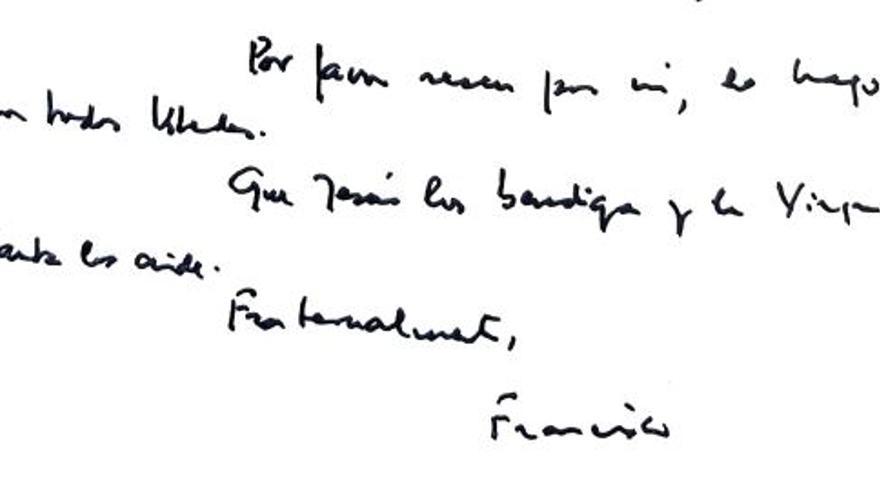 Por favor recen por mí, lo hago
todos Ustedes.
Que Jesús los bendiga y la Virgen
Santa los cuide.
Fraternalmente,
Francisco